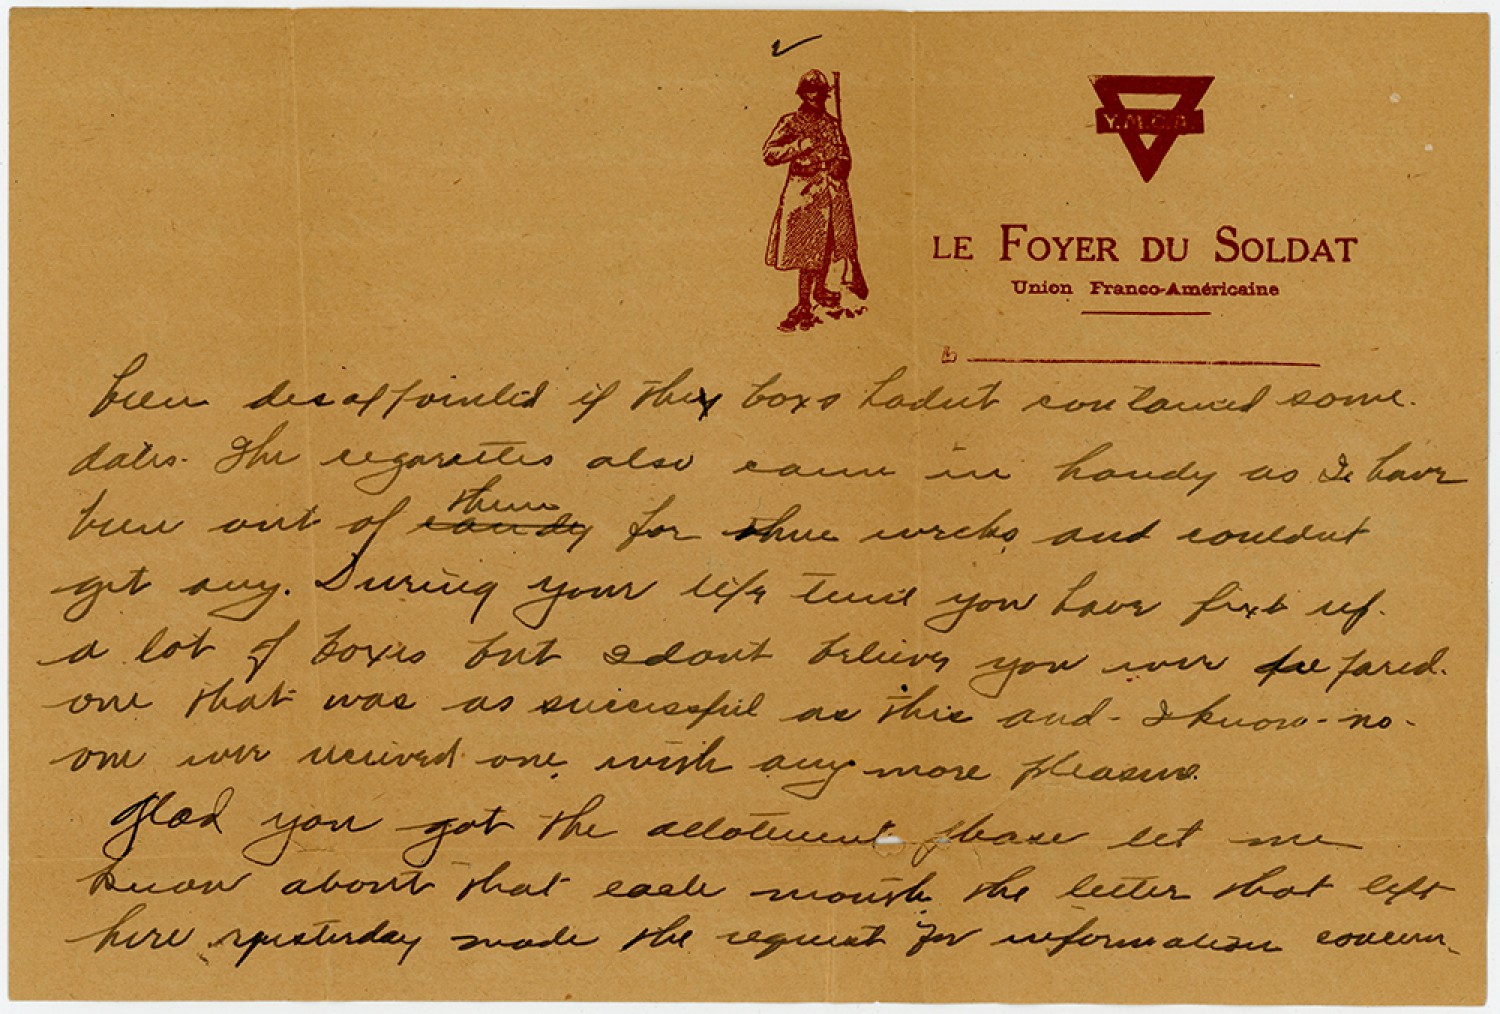 Y.M.C.A.
LE FOYER DU SOLDAT
Union Franco-Américaine
been desappointed if the boxs hadnt contained some
dates. The cigarettes also came in handy as I have
been out of candy them for three weeks and couldnt
get any. During your life time you have fixt up
a lot of boxes but I dont believe you ever prepared
one that was as successful as this and I know no
one ever recieved one with any more pleasure.
Glad you got the allotement please let me
know about that each month. the letter that left
here yesterday made the request for information concern-